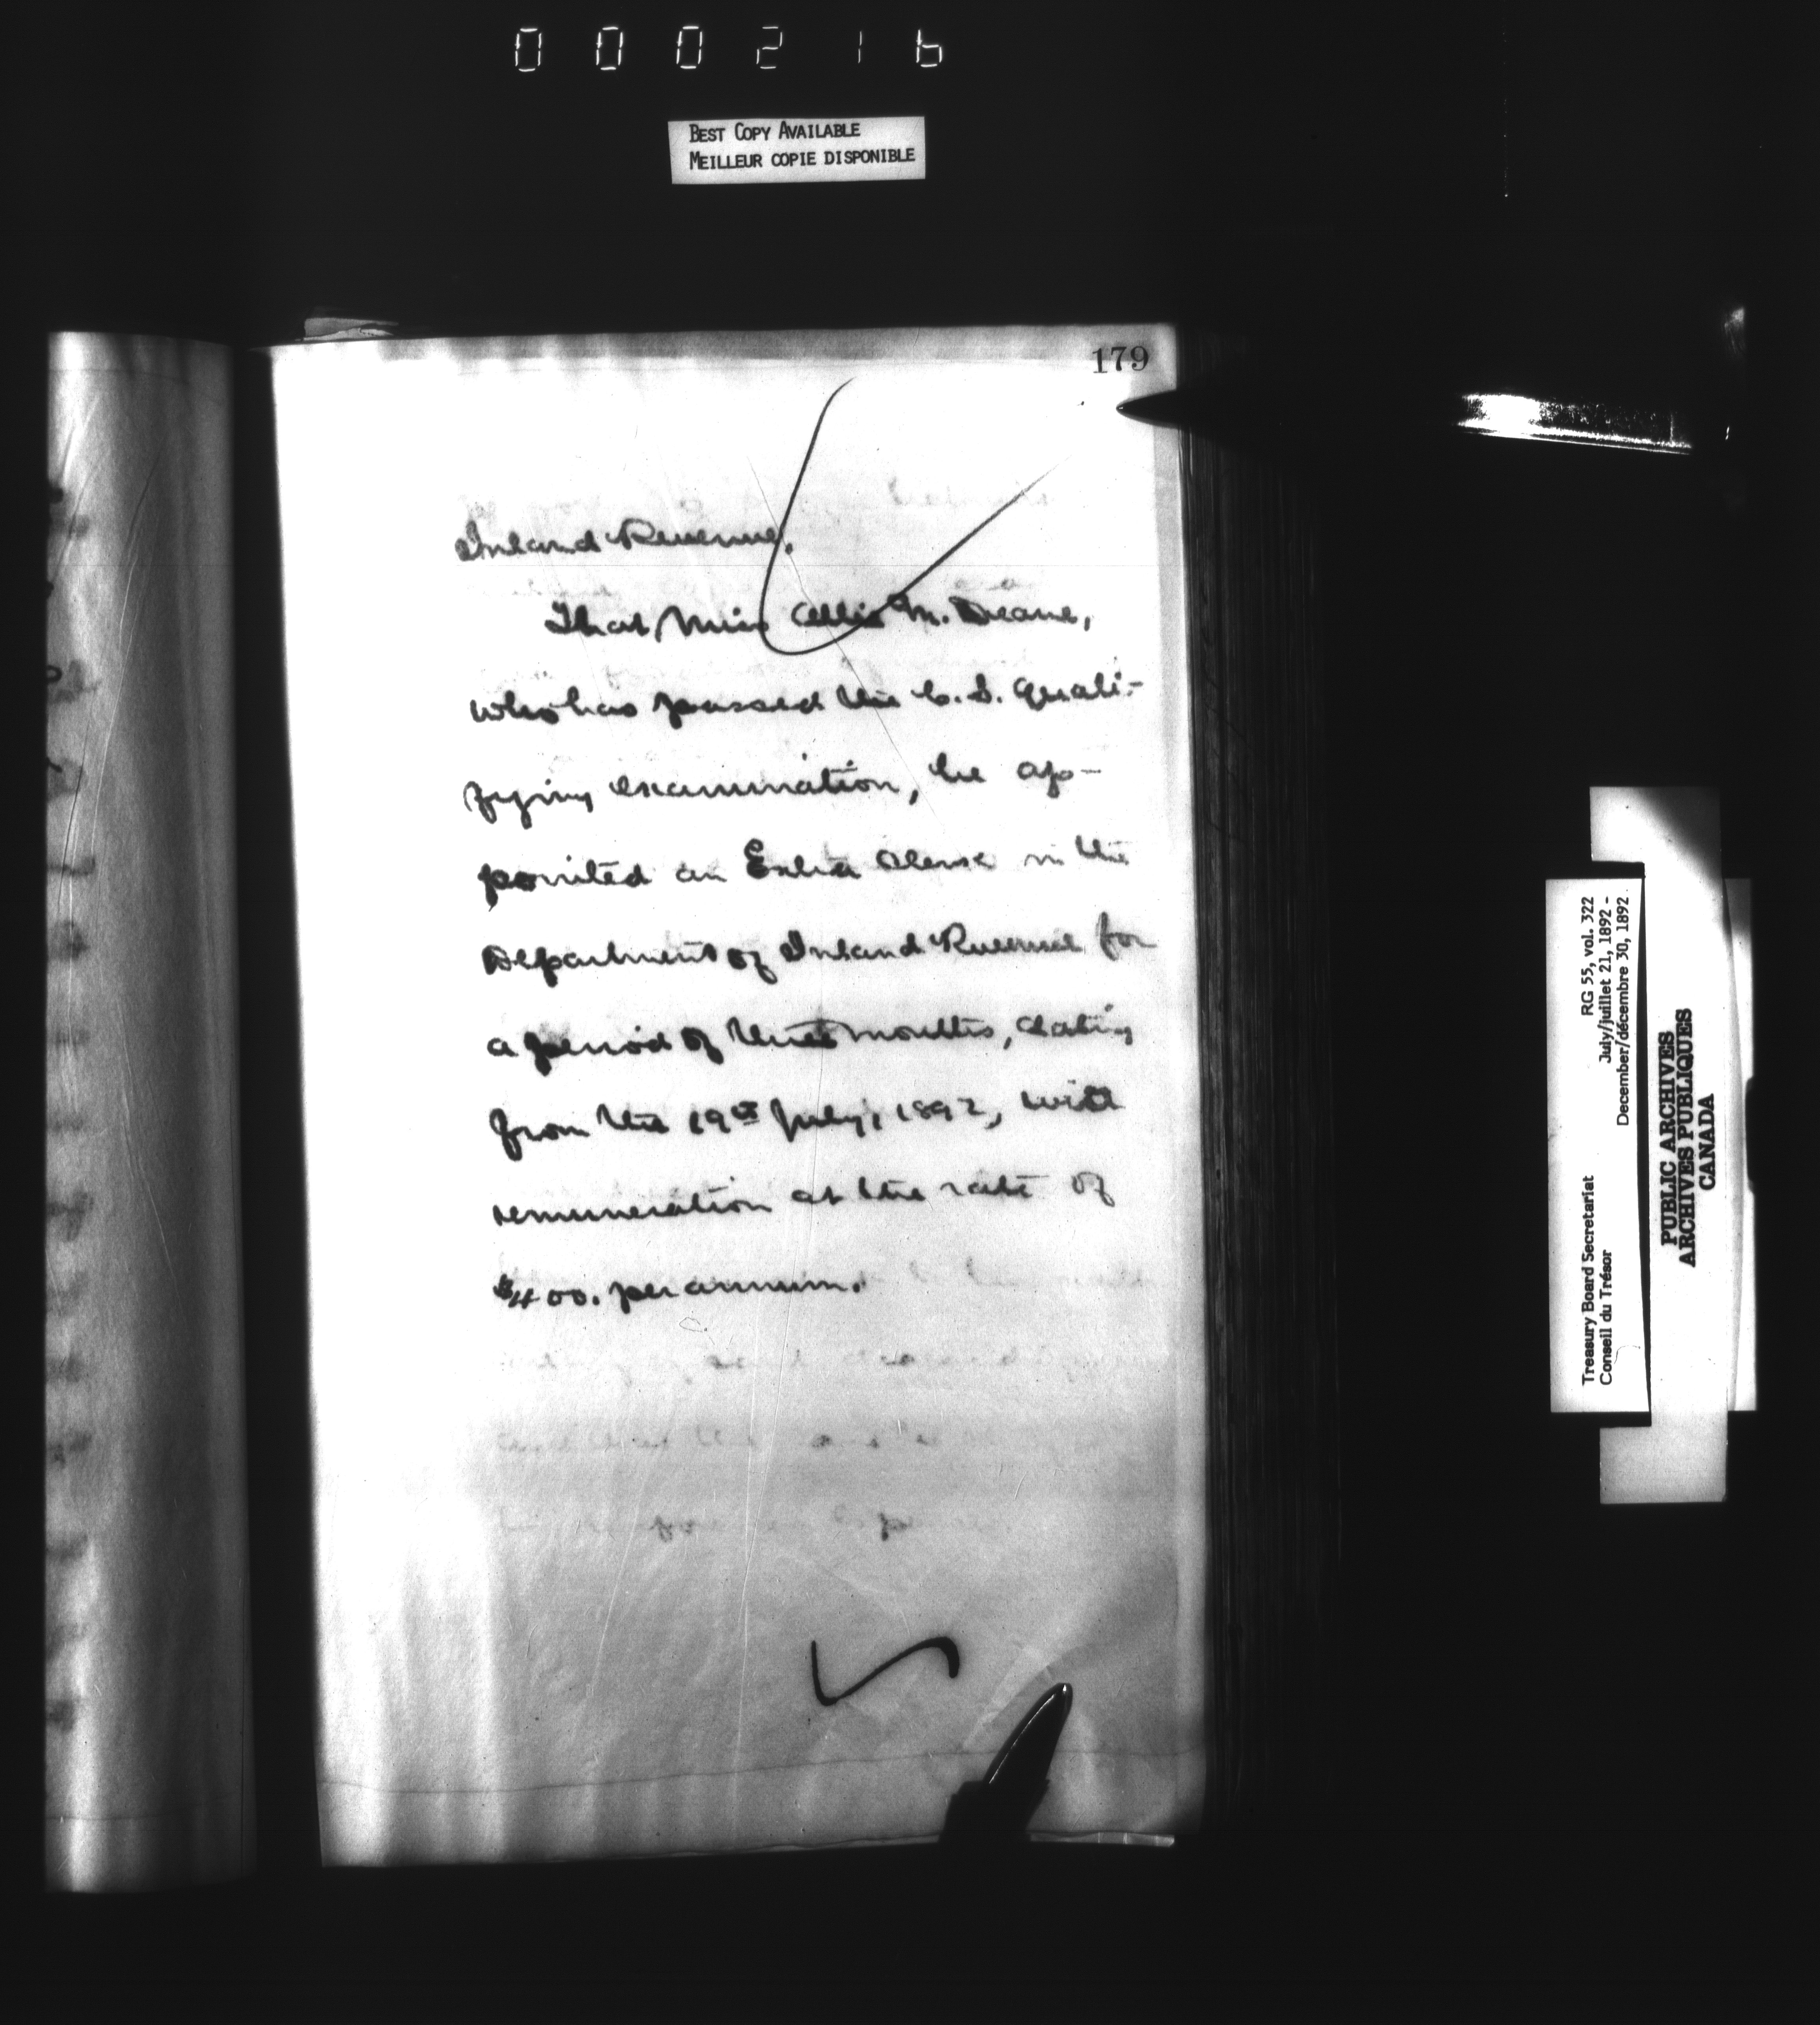 000216
BEST COPY AVAILABLE
MEILLEUR COPIE DISPONIBLE
179
Inland Revenue.
That Miss Allie M. Deane,
who has passed the C. S. Quali-
fying examination, be ap-
pointed an Extra Clerk in the
Department of Inland Revenue for
a period of three months, dating
from the 19th July, 1892, with
remuneration at the rate of
$400. per annum.
Treasury Board Secretariat RG 55, vol. 322
Conseil du Trésor July/juillet 21, 1892 -
December/décembre 30, 1892
PUBLIC ARCHIVES
ARCHIVES PUBLIQUES
CANADA